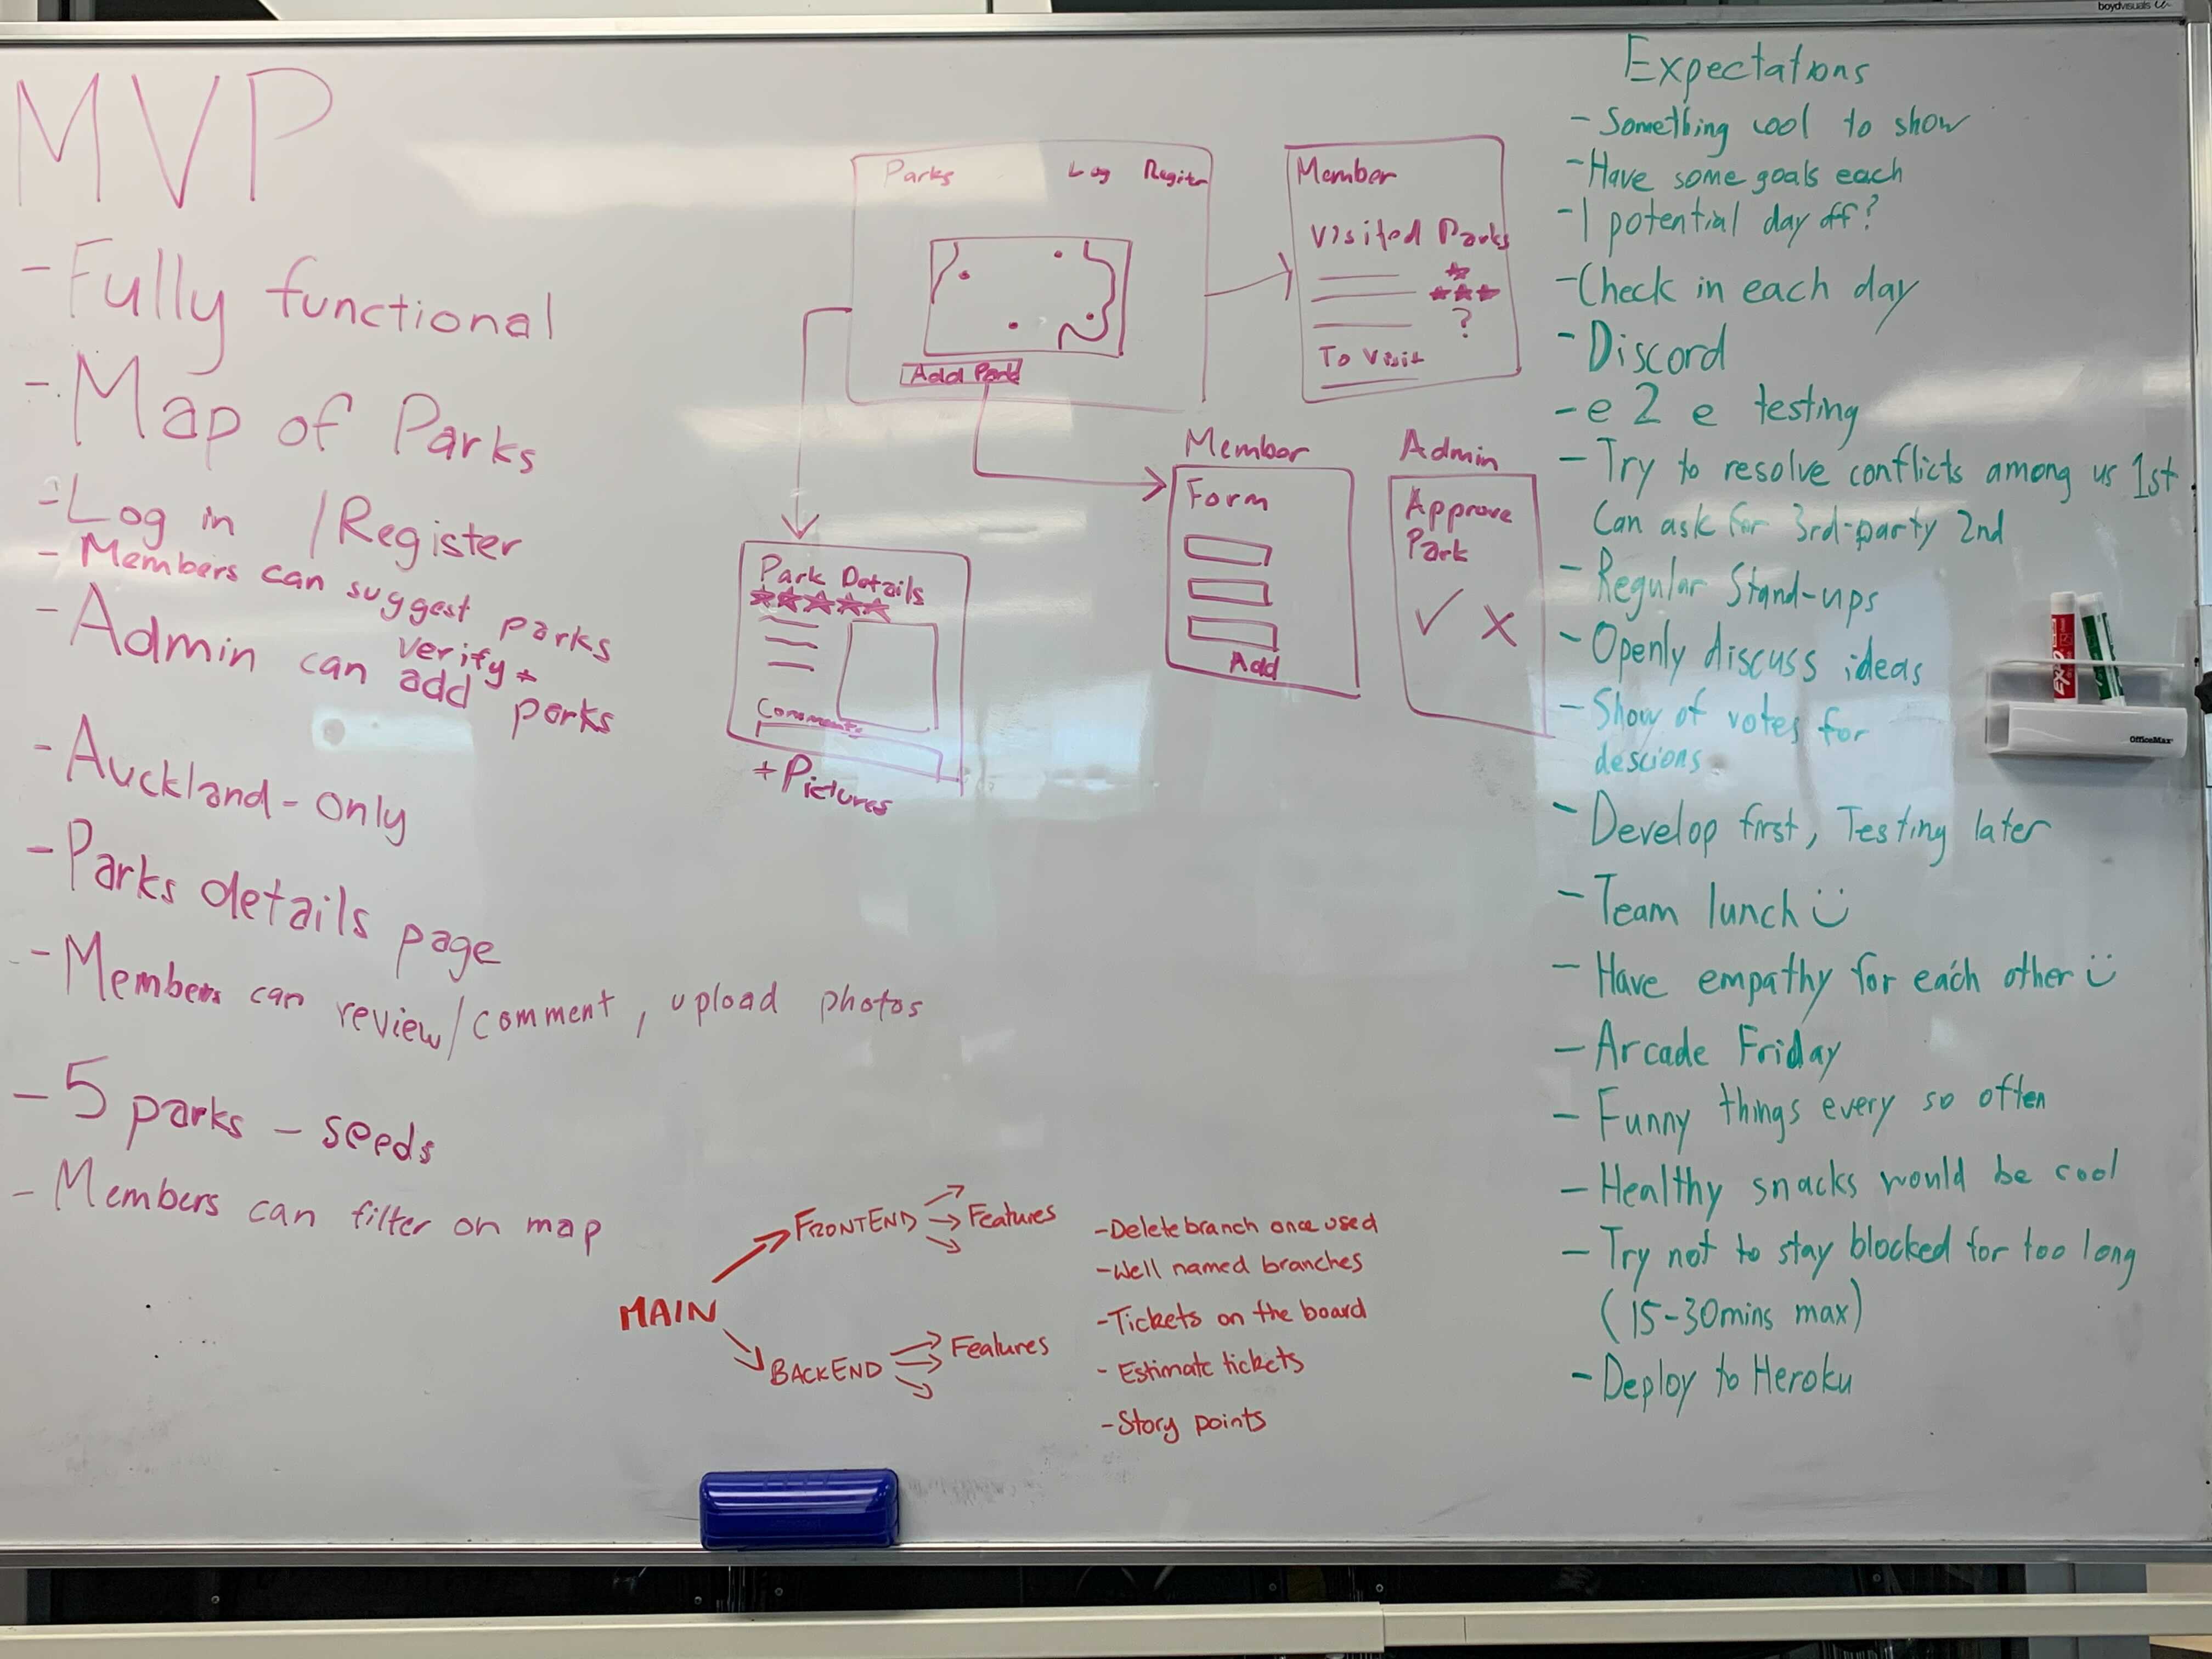 boydvisuals
MVP
- Fully functional
- Map of Parks
- Log in / Register
- Members can suggest parks
- Admin can verify +
add parks
- Auckland-only
- Parks details page
- Members can review/comment, upload photos
- 5 parks - seeds
- Members can filter on map
Parks Log Register
Add Park
Member
Visited Parks
?
To Visit
Member
Form
Add
Admin
Approve
Park
Park Details
Comments
+ Pictures
MAIN
FRONTEND
Features
BACKEND
Features
- Delete branch once used
- Well named branches
- Tickets on the board
- Estimate tickets
- Story points
Expectations
- Something cool to show
- Have some goals each
- 1 potential day off?
- Check in each day
- Discord
- e 2 e testing
- Try to resolve conflicts among us 1st
Can ask for 3rd-party 2nd
- Regular Stand-ups
- Openly discuss ideas
- Show of votes for
descions
- Develop first, Testing later
- Team lunch
- Have empathy for each other
- Arcade Friday
- Funny things every so often
- Healthy snacks would be cool
- Try not to stay blocked for too long
(15-30mins max)
- Deploy to Heroku
EXPO
OfficeMax